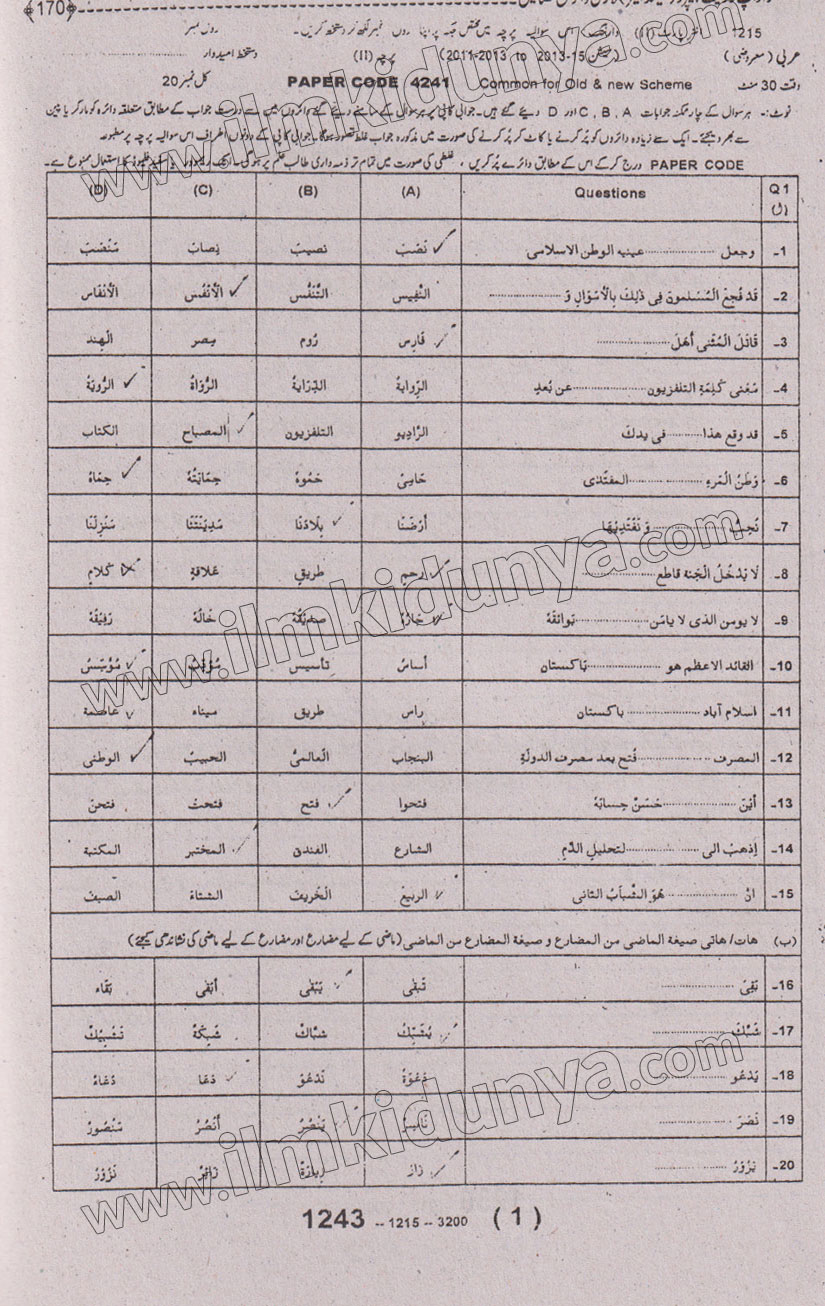 ﴿170﴾
1215 وارننگ:۔ اس سوالیہ پرچہ میں مختص جگہ پر اپنا رول نمبر لکھ کر دستخط کریں۔ رول نمبر
عربی (معروضی) (سیشن 2013-15 to 2011-2013) پرچہ (II) دستخط امیدوار
وقت 30 منٹ Common for Old & new Scheme PAPER CODE 4241 کل نمبر 20
نوٹ:۔ ہر سوال کے چار ممکنہ جوابات A , B , C اور D دیئے گئے ہیں۔ جوابی کاپی پر ہر سوال کے سامنے دیئے گئے دائروں میں سے درست جواب کے مطابق متعلقہ دائرہ کو مارکر یا پین
سے بھر دیجئے۔ ایک سے زیادہ دائروں کو پُر کرنے یا کاٹ کر پُر کرنے کی صورت میں مذکورہ جواب غلط تصور ہوگا۔ جوابی کاپی کے دونوں اطراف اس سوالیہ پرچہ پر مطبوعہ
PAPER CODE درج کرکے اس کے مطابق دائرے پُر کریں ، غلطی کی صورت میں تمام تر ذمہ داری طالب علم پر ہوگی۔ استعمال ممنوع ہے۔
Q 1 (ل) Questions (A) (B) (C) (D)
1۔ وجعل ........ عینیه الوطن الاسلامی نَصْبَ نصیبَ نِصابَ مَنْصَبَ
2۔ قَدْ فُجِعَ الْمُسْلِمونَ فِی ذٰلِكَ بِالْاَمْوَالِ وَ ........ النَّفِيس التَّنَفُّس الْاَنْفُس الْاَنْفَاس
3۔ قَاتَلَ الْمُثَنّٰی أَهْلَ ........ فَارِس رُوم مِصر الْهِند
4۔ مَعْنٰی كَلِمَةِ التلفزیون ........ عن بُعدٍ الرِّوايةُ الدِّرَايةُ الرُّوَاةُ الرُّويَةُ
5۔ قد وقع هذا ........ فی یدك الرَّادِيو التلفزيون المصباح الكتاب
6۔ وَطَنُ الْمَرءِ ........ المفتدٰی حَامِیُ حَمُوهُ حِمَايَتُهُ حِمَاهُ
7۔ نُحِبُّ ........ وَ نَفْتَدِيْهَا أَرْضَنَا بِلَادَنَا مَدِيْنَتَنَا مَنْزِلَنَا
8۔ لَا يَدْخُلُ الْجَنَة قاطع ........ رحمٍ طريقٍ عَلاقةٍ كلامٍ
9۔ لا يومن الذی لا يامن ........ بَوائقَهٗ جَارُهٗ صَدِيْقُهٗ خَالُهٗ رَفِيْقُهٗ
10۔ القائد الاعظم هو ........ بَاكستان أساسُ تأسيس مُؤَسَّسُ مُؤَسِّسُ
11۔ اسلام آباد ........ باكستان راس طريق ميناء عاصمة
12۔ المصرف ........ فُتح بعد مصرف الدولةِ البنجاب الْعالمیُّ الحبيبُ الوطنی
13۔ أَيْنَ ........ حَسَنٌ حِسابَهٗ فتحوا فتح فتحتْ فتحنَ
14۔ اِذهبْ الی ........ لتحليلِ الدَّمِ الشارع الفندق المختبر المكتبة
15۔ انَّ ........ هُوَ الشَّبابُ الثَّانی الربيعَ الْخَريفَ الشتاءَ الصيفَ
(ب) هات/هاتی صيغة الماضی من المضارع و صيغة المضارع من الماضی (ماضی کے لیے مضارع اور مضارع کے لیے ماضی کی نشاندہی کیجئے)
16۔ بَقِیَ ........ تَبقٰی يَبْقٰی أبْقٰی بَقَاء
17۔ شَبَّكَ ........ يُشَبِّكُ شبَّاكٌ شَبَكَةٌ تَشْبِيْكٌ
18۔ يَدْعُو ........ دَعْوَةٌ نَدْعُوْ دَعَا دُعَاءٌ
19۔ نَصَرَ ........ نَاصِرٌ يَنْصُرُ أَنْصُرُ مَنْصُورٌ
20۔ يَزُوْرُ ........ زَارَ زِيارَةٌ زَائِرٌ نَزُوْرُ
1243 -- 1215 -- 3200 ( 1 )
www.ilmkidunya.com
www.ilmkidunya.com
www.ilmkidunya.com